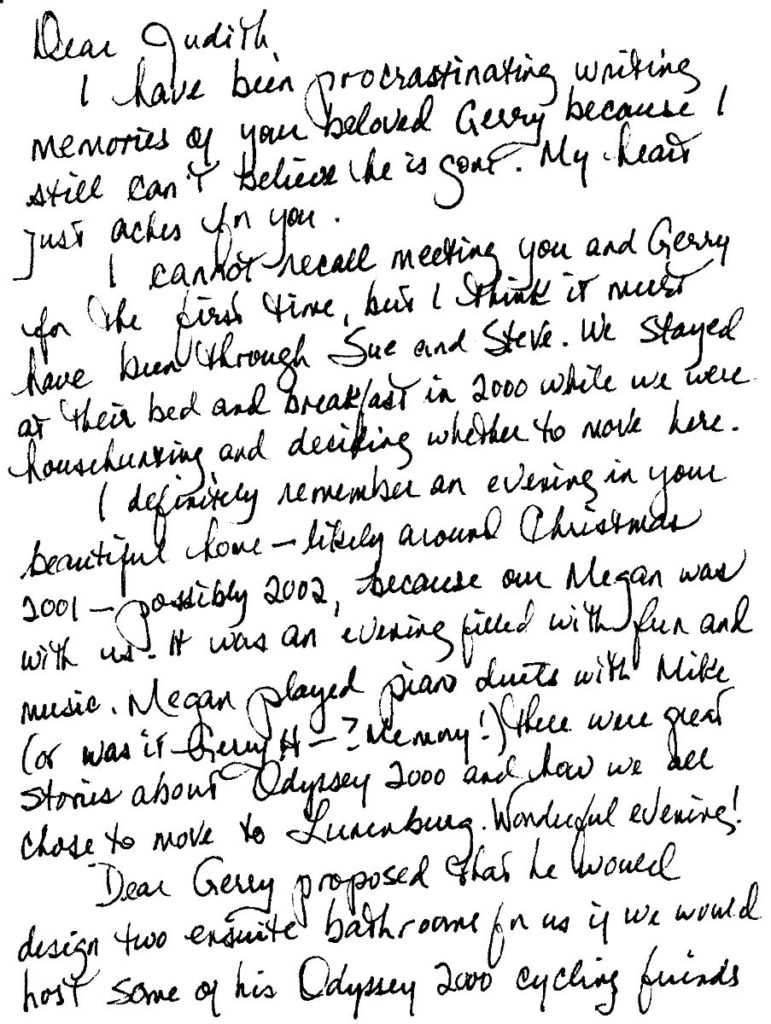 Dear Judith,
I have been procrastinating writing
memories of your beloved Gerry because I
still can't believe he is gone. My heart
just aches for you.
I cannot recall meeting you and Gerry
for the first time, but I think it must
have been through Sue and Steve. We stayed
at their bed and breakfast in 2000 while we were
househunting and deciding whether to move here.
I definitely remember an evening in your
beautiful home – likely around Christmas
2001 – possibly 2002, because our Megan was
with us. It was an evening filled with fun and
music. Megan played piano duets with Mike
(or was it Gerry H – ? Memory!) There were great
stories about Odyssey 2000 and how we all
chose to move to Lunenburg. Wonderful evening!
Dear Gerry proposed that he would
design two ensuite bathrooms for us if we would
host some of his Odyssey 2000 cycling friends